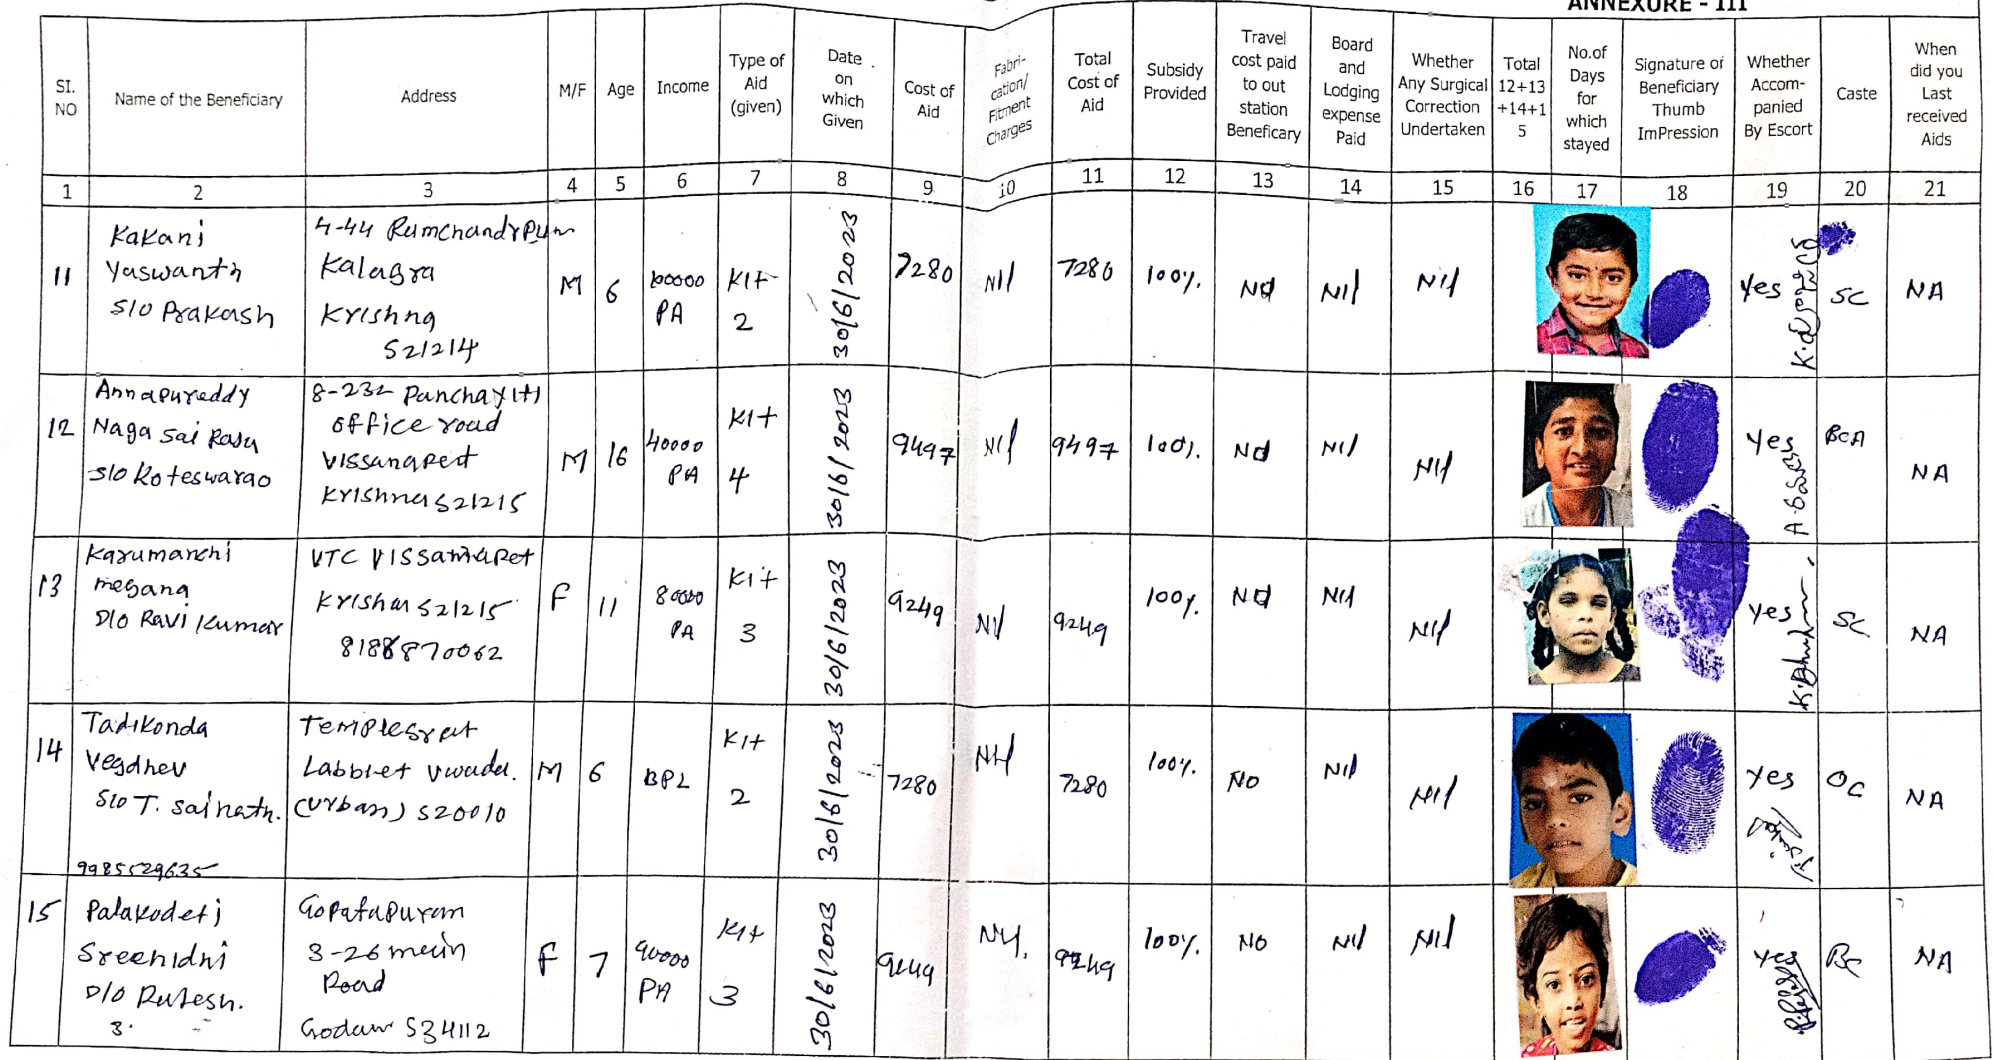 ANNEXURE - III
SI. NO
Name of the Beneficiary
Address
M/F
Age
Income
Type of Aid (given)
Date on which Given
Cost of Aid
Fabri-cation/ Fitment Charges
Total Cost of Aid
Subsidy Provided
Travel cost paid to out station Beneficary
Board and Lodging expense Paid
Whether Any Surgical Correction Undertaken
Total 12+13+14+15
No.of Days for which stayed
Signature of Beneficiary Thumb ImPression
Whether Accom-panied By Escort
Caste
When did you Last received Aids
1 2 3 4 5 6 7 8 9 10 11 12 13 14 15 16 17 18 19 20 21
11
Kakani
Yaswanth
S/O Prakash
4-44 Ramchandrapuram
Kalagra
Krishna
521214
M
6
100000
PA
Kit
2
30/6/2023
7280
Nil
7280
100%
No
Nil
Nil
Yes
SC
NA
12
Annapureddy
Naga Sai Raju
S/O Koteswarao
8-232 Panchayiti
office road
Vissanapet
Krishna 521215
M
16
40000
PA
Kit
4
30/6/2023
9497
Nil
9497
100%
No
Nil
Nil
Yes
BCA
NA
13
Karumanchi
megana
D/O Ravi Kumar
VTC Vissanapet
Krishna 521215
8188870062
F
11
80000
PA
Kit
3
30/6/2023
9249
Nil
9249
100%
No
Nil
Nil
Yes
SC
NA
14
Tadikonda
Vegdhev
S/O T. Sainath.
9985529635
Templesreet
Labbiet Vwada.
(Urban) 520010
M
6
BPL
Kit
2
30/6/2023
7280
Nil
7280
100%
NO
Nil
Nil
Yes
OC
NA
15
Palakodeti
Sreenidhi
D/O Rutesh.
3.
Gopalapuram
3-26 main
Road
Godavr 534112
F
7
90000
PA
Kit
3
30/6/2023
9249
Nil.
9249
100%
NO
Nil
Nil
Yes
BC
NA